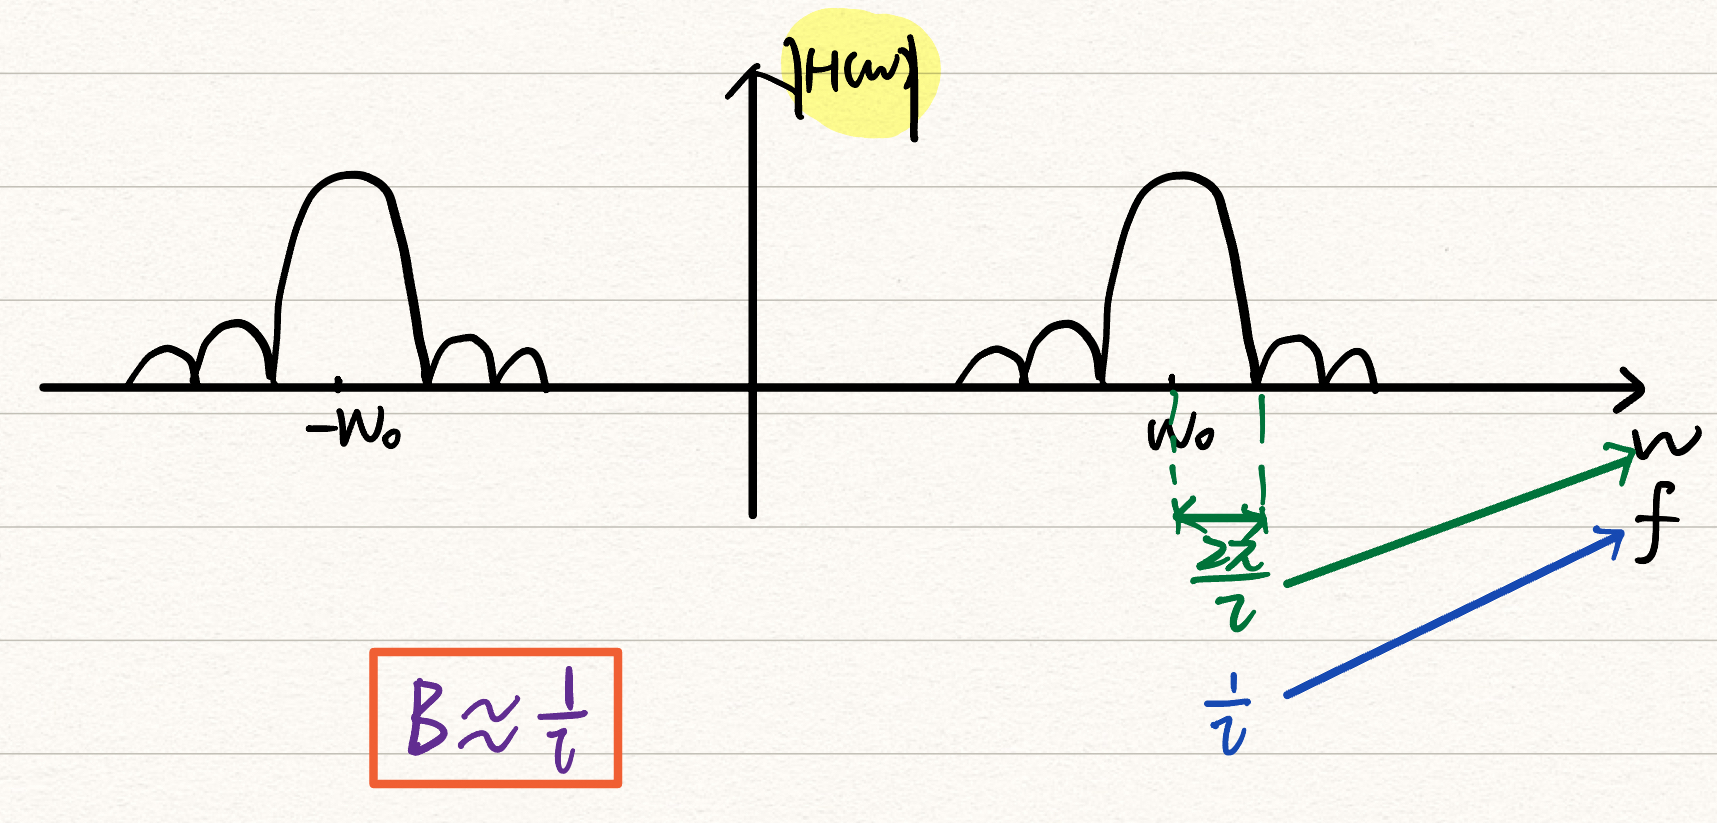 |H(w)|
-W₀
W₀
w
f
2π/τ
1/τ
B ≈ 1/τ